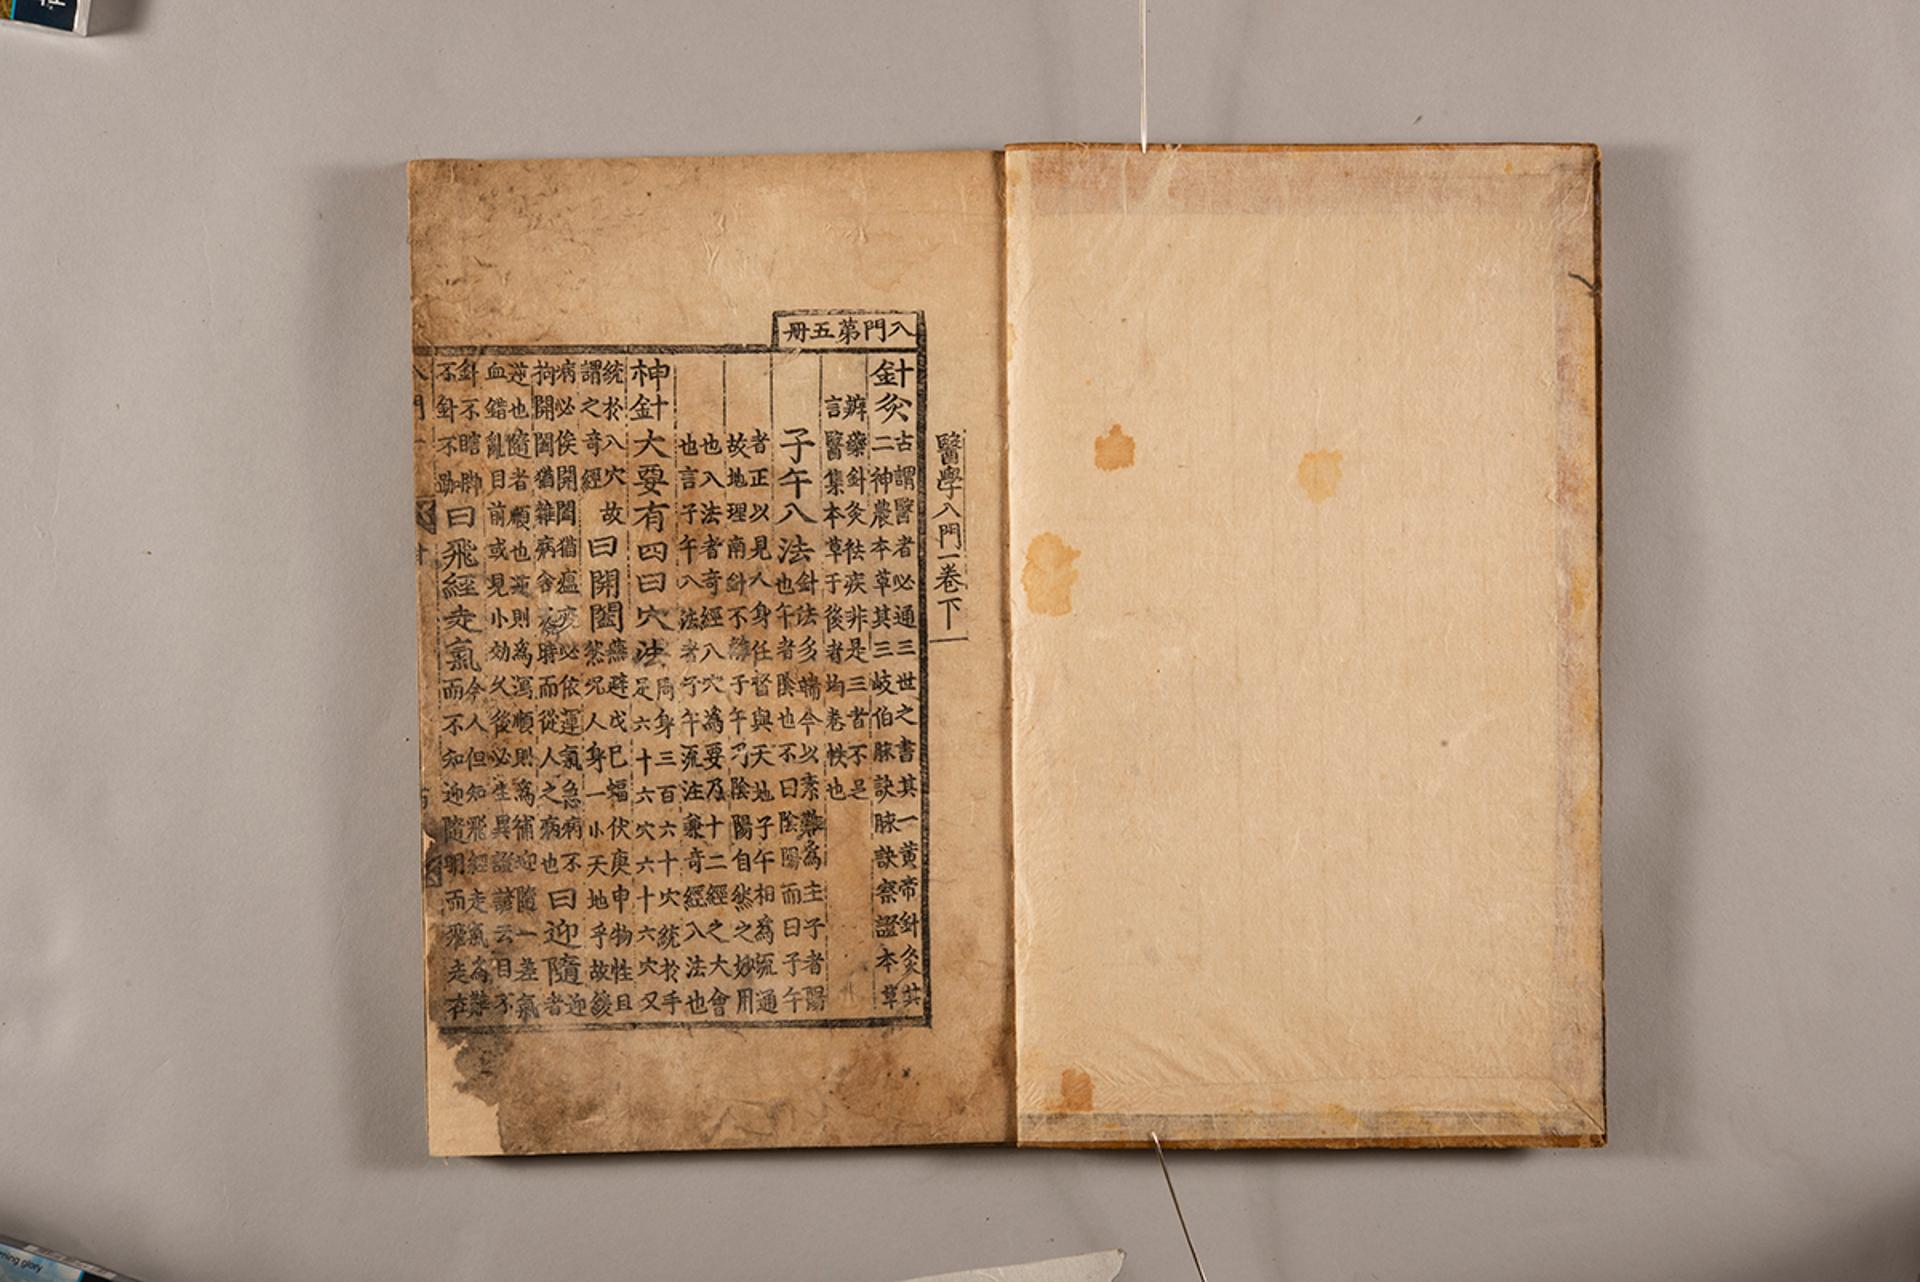 入門第五冊
醫學入門一卷下
針灸
古謂醫者必通三世之書其一黃帝針灸其
二神農本草其三岐伯脉訣脉訣察證本草
辨藥針灸袪疾非是三者不足
言醫集本草于後者均卷帙也
子午八法
針法多端今以素難為主子者陽
也午者陰也不曰陰陽而曰子午
者正以見人身任督與天地子午相為流通
故地理南針不離子午乃陰陽自然之妙用
也八法者奇經八穴為要乃十二經之大會
也言子午八法者子午流注兼奇經八法也
神針大要有四曰穴法
周身三百六十穴統於手
足六十六穴六十六穴又
統於八穴故
謂之奇經
曰開闔
燕避戊巳蝠伏庚申物性且
然况人身一小天地乎故緩
病必俟開闔猶瘟疫必依運氣急病不
拘開闔猶雜病舍時而從人之病也
曰迎隨
迎
者
逆也隨者順也逆則為瀉順則為補迎隨一差氣
血錯亂目前或見小効久後必生異證諺云目不
針不瞎脚
不針不跏
曰飛經走氣
今人但知飛經走氣為難
而不知迎隨明而飛走在